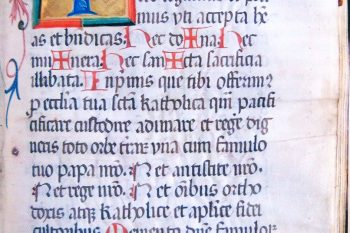 mus uti accepta he
as et bndicas. Hec do✠na. Hec
mu✠nera. Hec san✠cta sacrificia
illibata. Inpimis que tibi offerim9
p ecclia tua scta katholica qm pacifi
ficare custodire adunare et rege dig
neris toto orbe trar una cum famulo
tuo papa nro. N et antistite nro.
N et rege nro. N et oibus ortho
doxis atq katholice et aplice fidei
cultoribus. Memento dne famulor